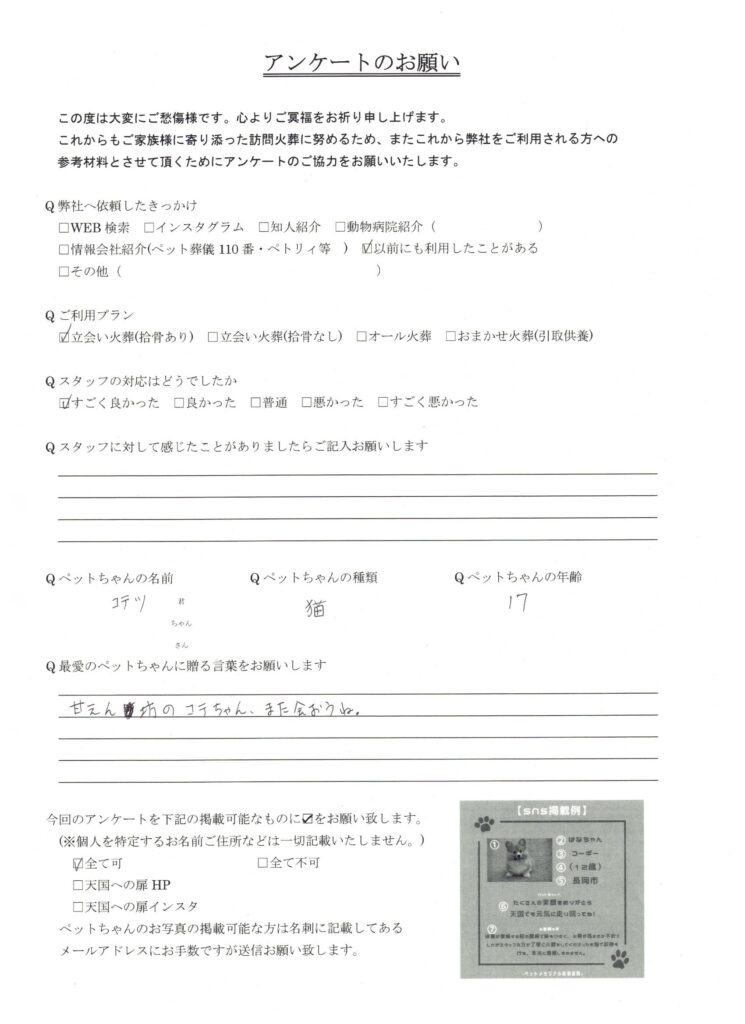 アンケートのお願い
この度は大変にご愁傷様です。心よりご冥福をお祈り申し上げます。
これからもご家族様に寄り添った訪問火葬に努めるため、またこれから弊社をご利用される方への
参考材料とさせて頂くためにアンケートのご協力をお願いいたします。
Q 弊社へ依頼したきっかけ
□WEB 検索 □インスタグラム □知人紹介 □動物病院紹介（ ）
□情報会社紹介(ペット葬儀 110 番・ペトリィ等 ) ☑以前にも利用したことがある
□その他（ ）
Q ご利用プラン
☑立会い火葬(拾骨あり) □立会い火葬(拾骨なし) □オール火葬 □おまかせ火葬(引取供養)
Q スタッフの対応はどうでしたか
☑すごく良かった □良かった □普通 □悪かった □すごく悪かった
Q スタッフに対して感じたことがありましたらご記入お願いします
Q ペットちゃんの名前 Q ペットちゃんの種類 Q ペットちゃんの年齢
コテツ 君 猫 17
ちゃん
さん
Q 最愛のペットちゃんに贈る言葉をお願いします
甘えん坊のコテちゃん、また会おうね。
今回のアンケートを下記の掲載可能なものに☑をお願い致します。
(※個人を特定するお名前ご住所などは一切記載いたしません。)
☑全て可 □全て不可
□天国への扉 HP
□天国への扉インスタ
ペットちゃんのお写真の掲載可能な方は名刺に記載してある
メールアドレスにお手数ですが送信お願い致します。
【sns掲載例】
① ②はなちゃん
③コーギー
④(12歳)
⑤長岡市
⑥たくさんの笑顔をありがとう
天国でも元気に走り回ってね!
⑦